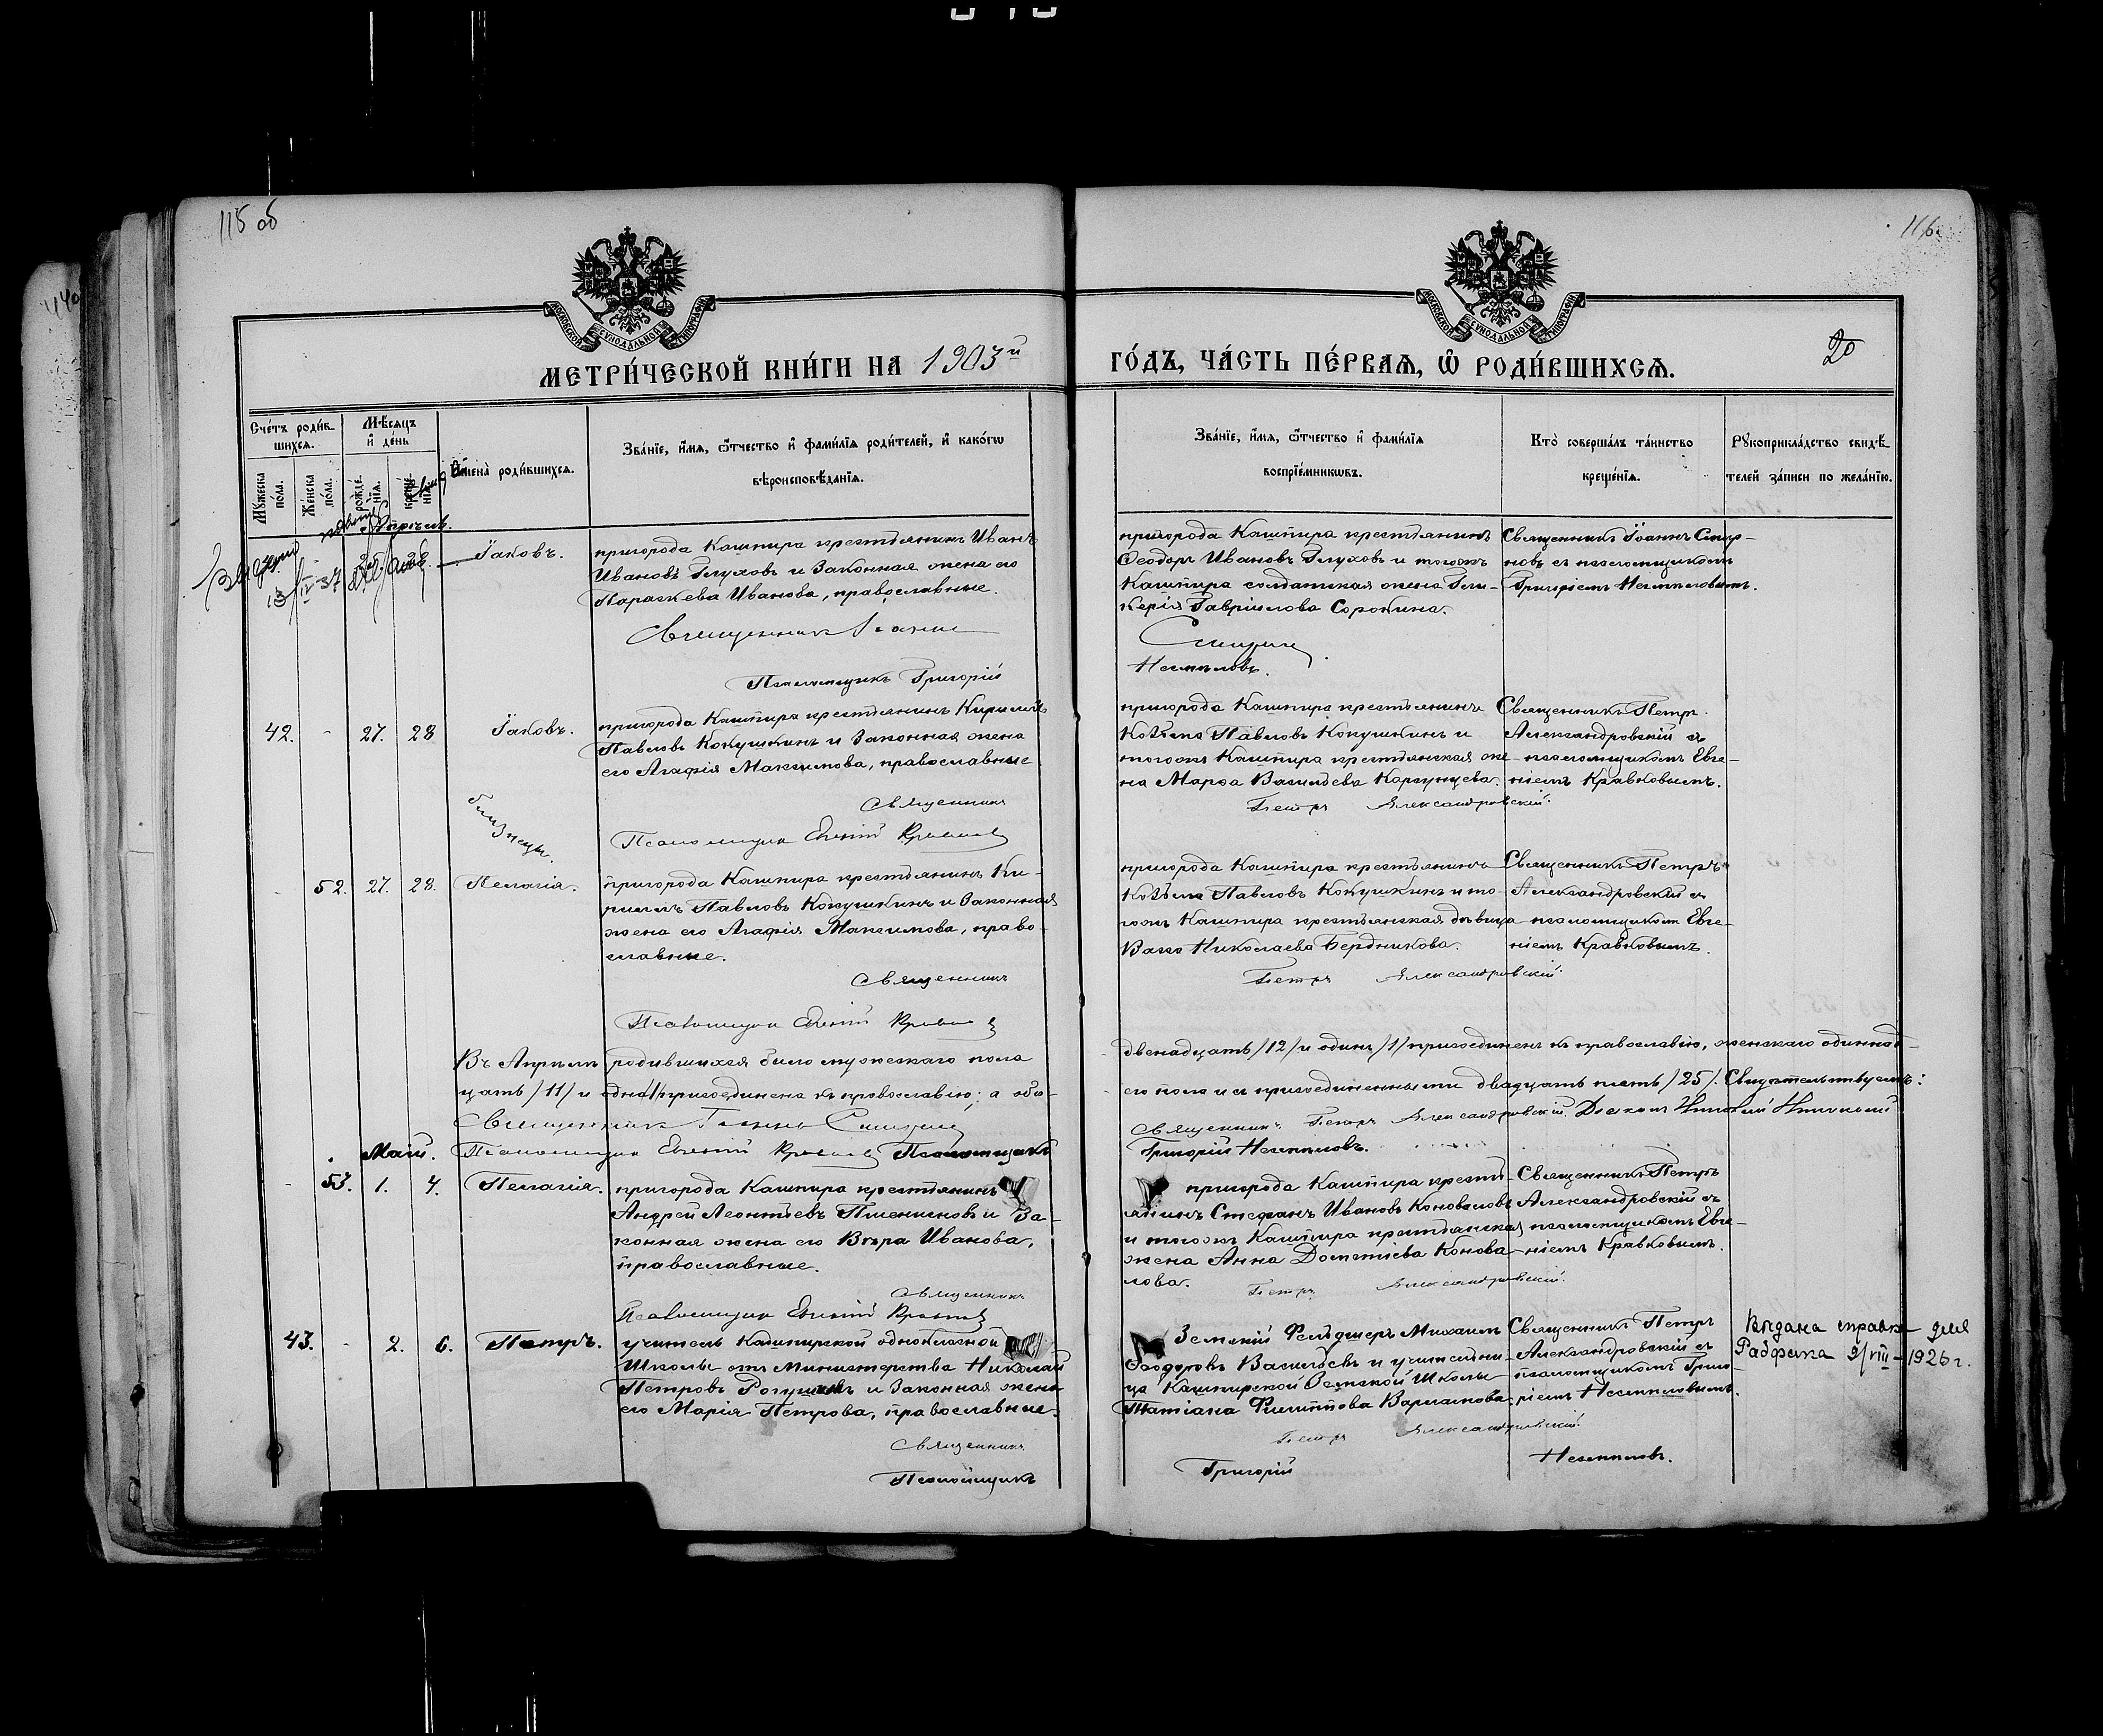 115 об
116
МОСКОВСКОЙ СѴНОДАЛЬНОЙ ТИПОГРАФІИ
МОСКОВСКОЙ СѴНОДАЛЬНОЙ ТИПОГРАФІИ
МЕТРИ́ЧЕСКОЙ КНИ́ГИ НА 1903й
ГО́ДЪ, ЧА́СТЬ ПЕ́РВАѦ, Ѡ҆ РОДИ́ВШИХСѦ.
20
Сче́тъ роди́в-
шихсѧ.
Мѣ́сѧцъ
и҆ де́нь
Мꙋ́жеска по́ла.
Же́нска по́ла.
рожде́-
нїѧ.
креще́-
нїѧ.
И҆мена̀ роди́вшихсѧ.
Зва́нїе, и҆́мѧ, ѻ҆́тчество и҆ фами́лїѧ роди́телей, и҆ како́гѡ
вѣроисповѣ́данїѧ.
Зва́нїе, и҆́мѧ, ѻ҆́тчество и҆ фами́лїѧ
воспрїе́мникѡвъ.
Кто̀ соверша́лъ та́инство
креще́нїѧ.
Рꙋкоприкла́дство свидѣ́-
телей за́писи по жела́нїю.
Апрѣль.
28. Іаковъ.
пригорода Кашпира крестьянинъ Иванъ
Ивановъ Глуховъ и законная жена его
Параскева Иванова, православные.
Священникъ Іоаннъ
Псаломщикъ Григорій
пригорода Кашпира крестьянинъ
Ѳеодоръ Ивановъ Глуховъ и тогожъ
Кашпира солдатская жена Гли-
керія Гавріилова Сорокина.
Смирнов
Несмеловъ.
Священникъ Іоаннъ Смир-
новъ съ псаломщикомъ
Григоріемъ Несмеловымъ.
42. - 27. 28 Іаковъ.
пригорода Кашпира крестьянинъ Кириллъ
Павловъ Кокушкинъ и законная жена
его Агафія Максимова, православные
Священникъ
Псаломщикъ Евгеній Кравков
пригорода Кашпира крестьянинъ
Павловъ Кокушкинъ и
тогожъ Кашпира крестьянская же-
на Марѳа Васильева Карпунцева.
Петръ Александровскій.
Священникъ Петръ
Александровскій съ
псаломщикомъ Евге-
ніемъ Кравковымъ.
близнецы.
- 52. 27. 28. Пелагія.
пригорода Кашпира крестьянинъ Ки-
риллъ Павловъ Кокушкинъ и законная
жена его Агафія Максимова, право-
славные.
Священникъ
Псаломщикъ Евгеній Кравков
пригорода Кашпира крестьянинъ
Павловъ Кокушкинъ и то-
гожъ Кашпира крестьянская дѣвица
Васса Николаева Бердникова.
Петръ Александровскій.
Священникъ Петръ
Александровскій съ
псаломщикомъ Евге-
ніемъ Кравковымъ.
Въ Апрѣлѣ родившихся было мужескаго пола
двенадцать /12/ и одинъ /1/ присоединенъ къ православію, женскаго одиннад-
цать /11/ и одна /1/ присоединена къ православію; а обо-
его пола и съ присоединенными двадцать пять /25/. Свидѣтельствуемъ:
Священникъ Іоаннъ Смирнов
Священникъ Петръ Александровскій. Діаконъ Николай
Псаломщикъ Евгеній Кравков Псаломщикъ
Григорій Несмеловъ.
Май.
- 53. 1. 4. Пелагія.
пригорода Кашпира крестьянинъ
Андрей Леонтьевъ Пшениновъ и за-
конная жена его Вѣра Иванова,
православные.
Священникъ
Псаломщикъ Евгеній Кравков
пригорода Кашпира кресть-
янинъ Стефанъ Ивановъ Коноваловъ
и тогожъ Кашпира крестьянская
жена Анна Дометіева Конова-
лова.
Петръ Александровскій.
Священникъ Петръ
Александровскій съ
псаломщикомъ Евге-
ніемъ Кравковымъ.
43. - 2. 6. Петръ.
учитель Кашпирской одноклассной
школы отъ Министерства Николай
Петровъ и законная жена
его Марія Петрова, православные.
Священникъ
Псаломщикъ
Земскій Фельдшеръ Михаилъ
Ѳеодоровъ Васильевъ и учительни-
ца Кашпирской Земской школы
Татіана Филиппова Варламова.
Петръ Александровскій.
Григорій Несмеловъ.
Священникъ Петръ
Александровскій съ
псаломщикомъ Григо-
ріемъ Несмеловымъ.
Выдана справка для
Рабфака 9/VIII-1926 г.